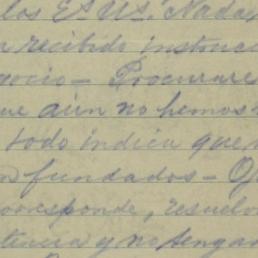 los E.ᵃ U.ˢ. Nada,
recibido instruc
gocio — Procurare
ue aún no hemos
todo indica que
n fundados — Of
corresponde, resuelv
tencia y no tengan